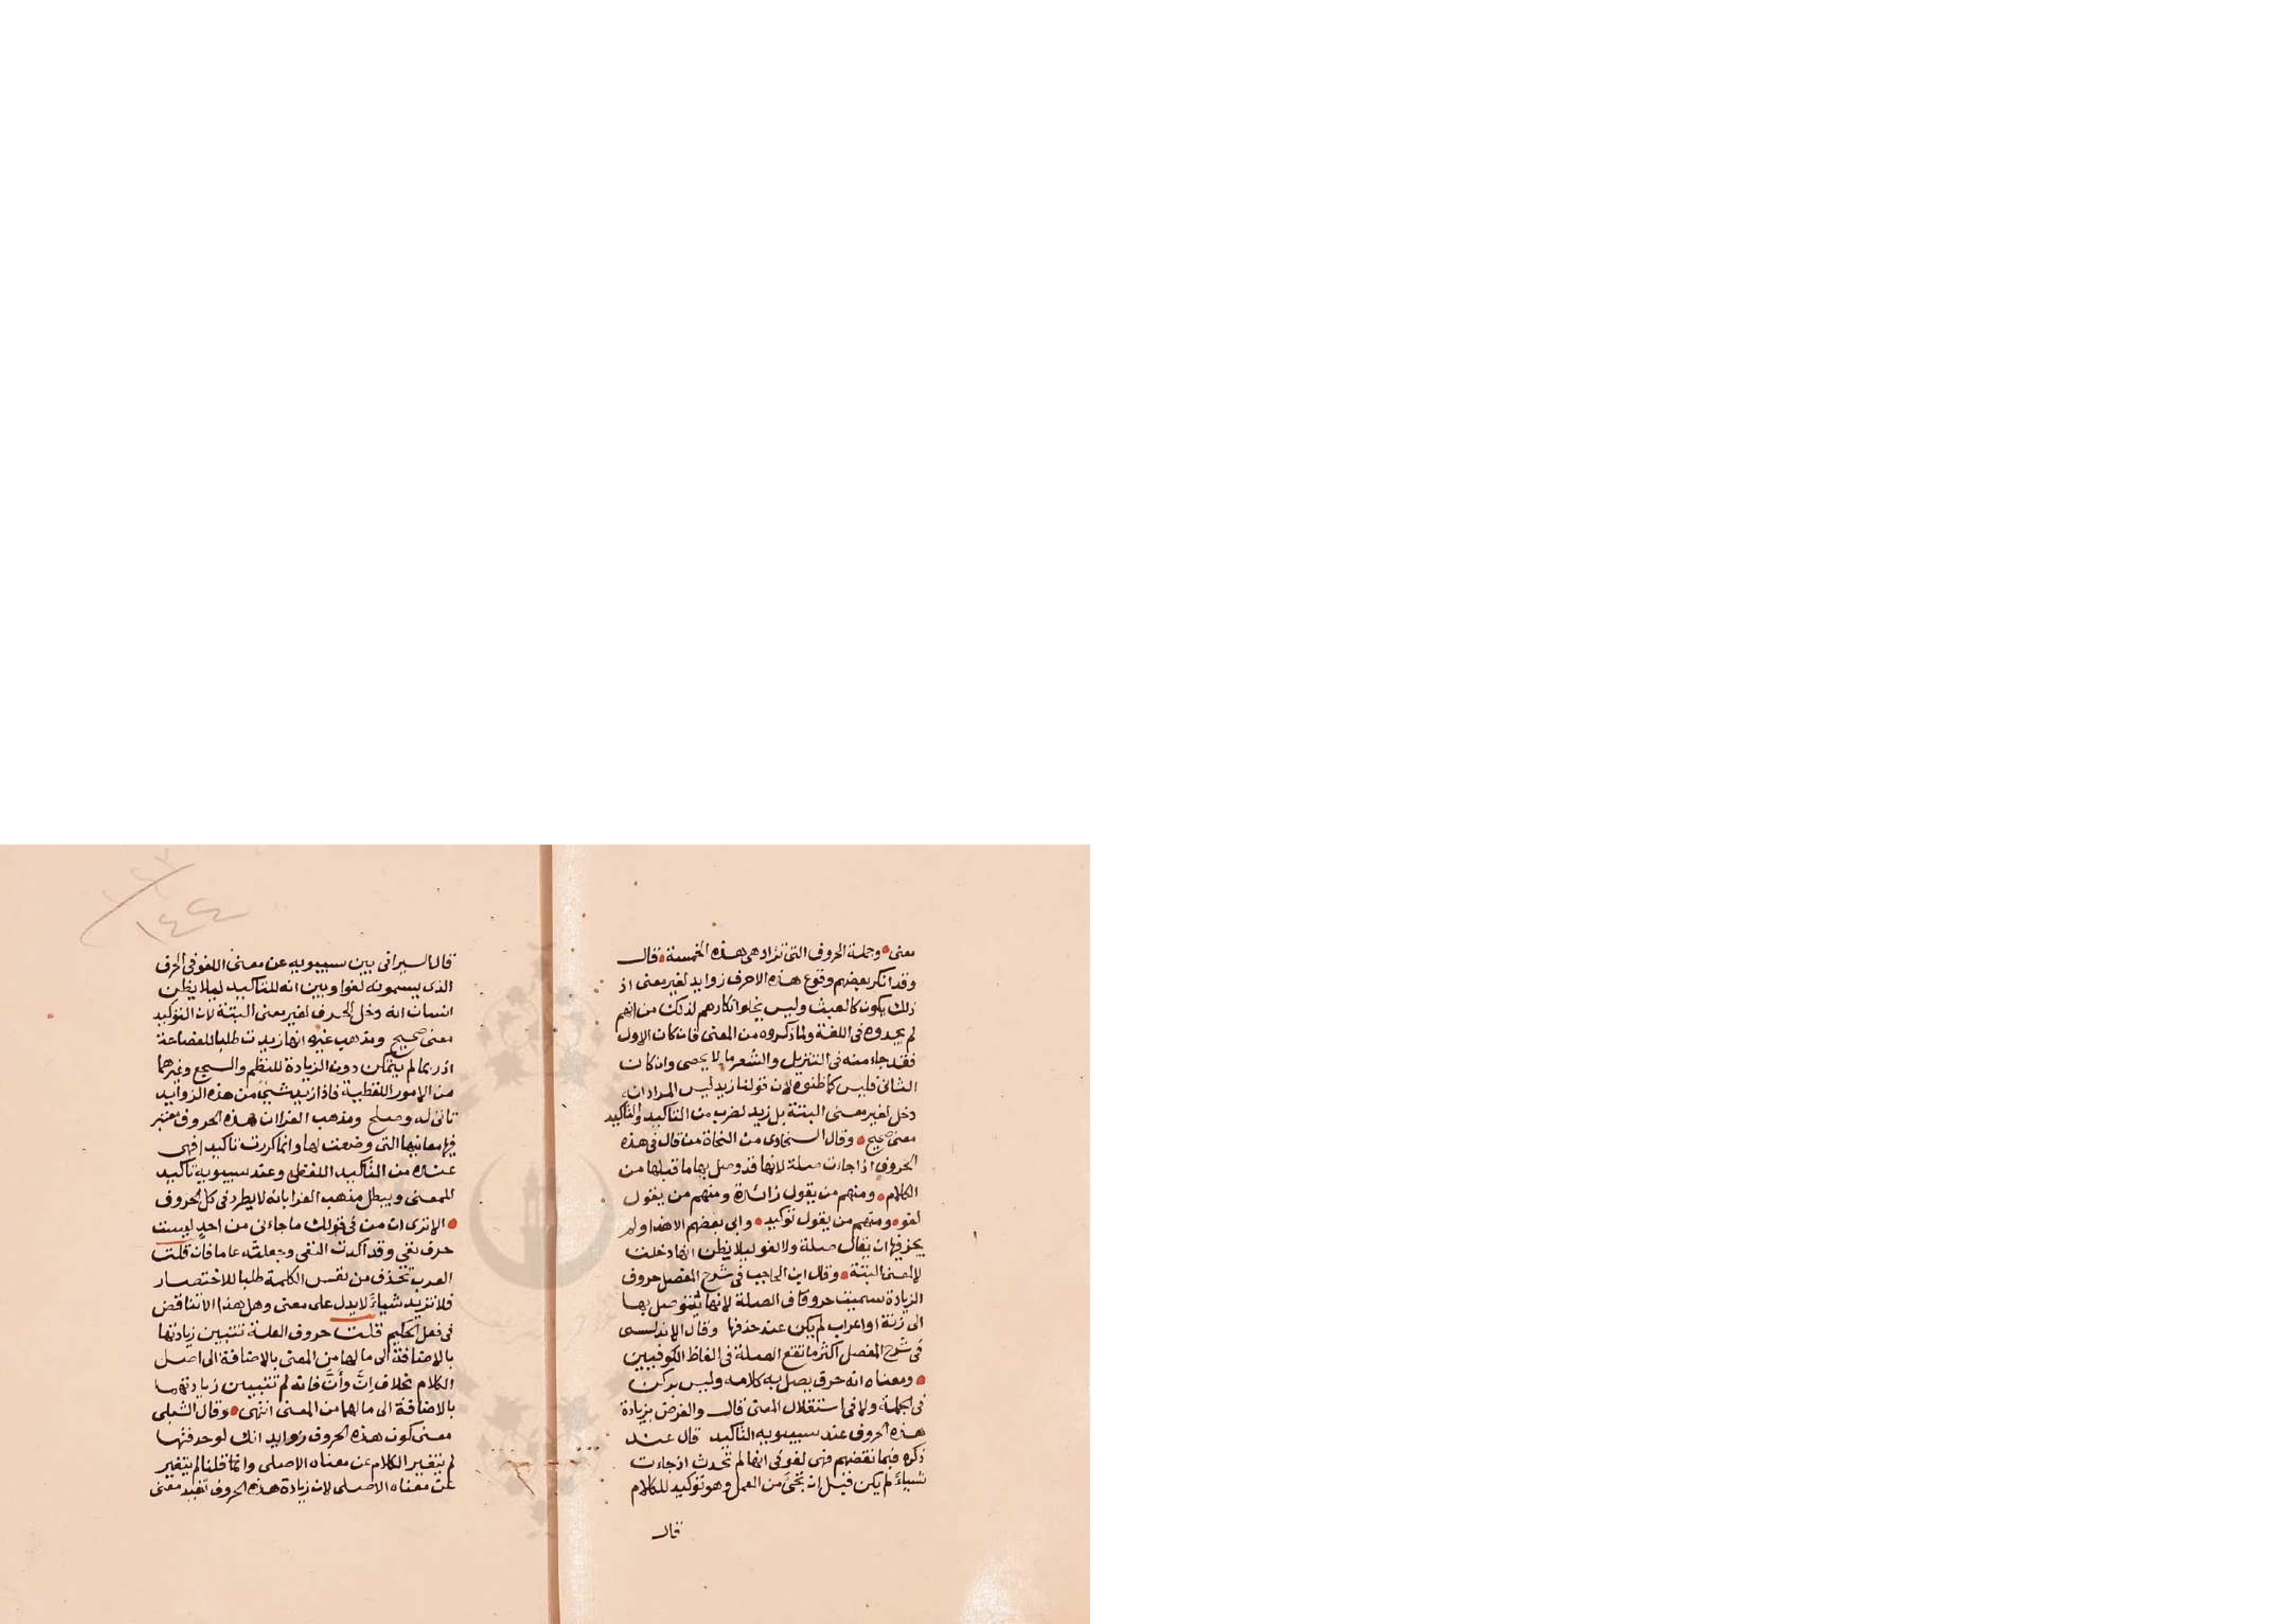 معنى وجملة الحروف التى تزاد هى هذه الخمسة قال
وقد انكر بعضهم وقوع هذه الاحرف زوايد لغير معنى اذ
ذلك يكون كالعبث وليس يخلو انكارهم لذلك من انهم
لم يجدوه فى اللغة ولما ذكروه من المعنى فان كان الاول
فقد جاء منه فى التنزيل والشعر ما لا يحصى وان كان
الثانى فليس كما ظنوه لان قولنا زيد ليس المراد انه
دخل لغير معنى البتة بل زيد لضرب من التاكيد والتاكيد
معنى صحيح وقال السخاوى من النحاة من قال فى هذه
الحروف اذا جاءت صلة لانها قد وصل بها ما قبلها من
الكلام ومنهم من يقول زائدة ومنهم من يقول
لغو ومنهم من يقول توكيد وابى بعضهم الا هذا ولم
يجز فيها ان يقال صلة ولا لغو ليلا يظن انها دخلت
لا لمعنى البتة وقال ابن الحاجب فى شرح المفصل حروف
الزيادة سميت حروف الصلة لانها يتوصل بها
الى زنة او اعراب لم يكن عند حذفها وقال الاندلسى
فى شرح المفصل اكثر ما تقع الصلة فى الفاظ الكوفيين
ومعناه انه حرف يصل به كلامه وليس بركن
فى الجملة ولا فى استقلال المعنى قال والغرض بزيادة
هذه الحروف عند سيبويه التاكيد قال عند
ذكره فبما نقضهم فهى لغو فى انها لم تحدث اذ جاءت
شياء لم يكن قبل ان تجئ من العمل وهو توكيد للكلام
قال
١٤٤
قال السيرافى بين سيبويه عن معنى اللغو فى الحرف
الذى يسمونه لغوا وبين انه للتاكيد ليلا يظن
انسان انه دخل الحرف لغير معنى البتة لان التوكيد
معنى صحيح ومذهب غيره انها زيدت طلبا للفصاحة
اذ ربما لم يتمكن دون الزيادة للنظم والسجع وغيرهما
من الامور اللفظية فاذا زيد شئ من هذه الزوايد
تاتى له وصلح ومذهب الفرا ان هذه الحروف معتبر
فيها معانيها التى وضعت لها وانما كررت تاكيدا فهى
عنده من التاكيد اللفظى وعند سيبويه تاكيد
للمعنى ويبطل مذهب الفرا بانه لا يطرد فى كل الحروف
الا ترى ان من فى قولك ما جاءنى من احد ليست
حرف نفى وقد اكدت النفى وجعلته عاما فان قلت
العرب تحذف من نفس الكلمة طلبا للاختصار
فلا تزيد شياء لا يدل على معنى وهل هذا الا تناقض
فى فعل الحكيم قلت حروف العلة تتبين زيادتها
بالاضافة الى ما لها من المعنى بالاضافة الى اصل
الكلام بخلاف إنَّ وأنَّ فانه لم تتبين زيادتهما
بالاضافة الى ما لهما من المعنى انتهى وقال الشبلى
معنى كون هذه الحروف زوايد انك لو حذفتها
لم يتغير الكلام عن معناه الاصلى وانما قلنا لم يتغير
عن معناه الاصلى لان زيادة هذه الحروف تفيد معنى